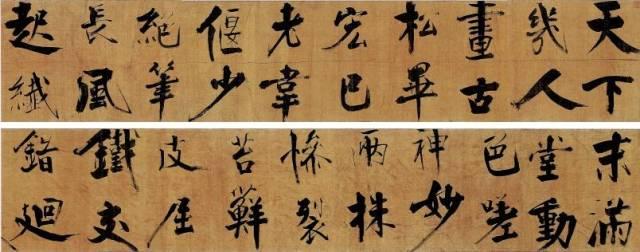 天下
幾人
畫古
松畢
宏已
老韋
偃少
絕筆
長風
起纖
末滿
堂動
色嗟
神妙
兩株
慘裂
苔蘚
皮屈
鐵交
錯廻